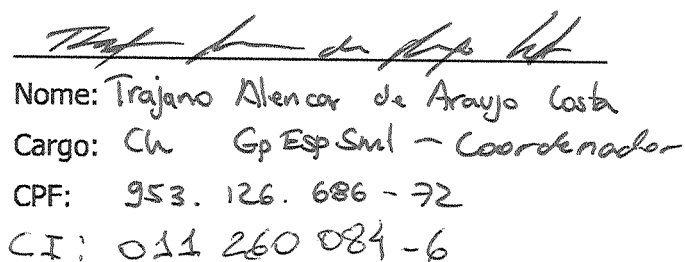 Nome: Trajano Alencar de Araujo Costa
Cargo: Ch Gp Esp Sml - Coordenador
CPF: 953.126.686-72
CI: 011 260 084-6